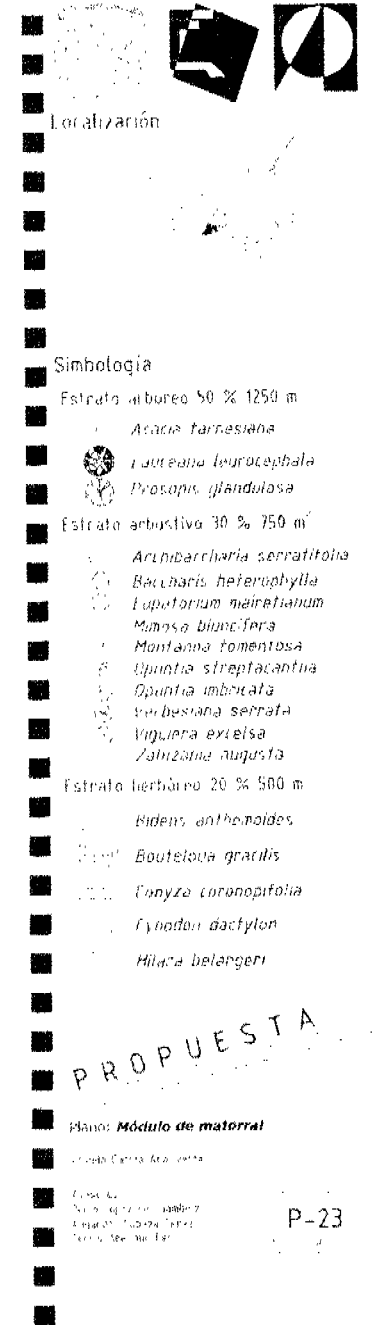 Localización
Simbología
Estrato arboreo 50 % 1250 m
Acacia farnesiana
Laureana leurocephala
Prosopis glandulosa
Estrato arbustivo 30 % 750 m²
Archibarcharia serratifolia
Baccharis heterophylla
Eupatorium mairetianum
Mimosa biuncifera
Montanna tomentosa
Opuntia streptacantha
Opuntia imbricata
Verbesiana serrata
Viguiera excelsa
Zaluzania augusta
Estrato herbáreo 20 % 500 m
Bidens anthemoides
Bouteloua gracilis
Conyza coronopifolia
Cynodon dactylon
Hilaria belangeri
PROPUESTA
Plano: Módulo de matorral
P-23